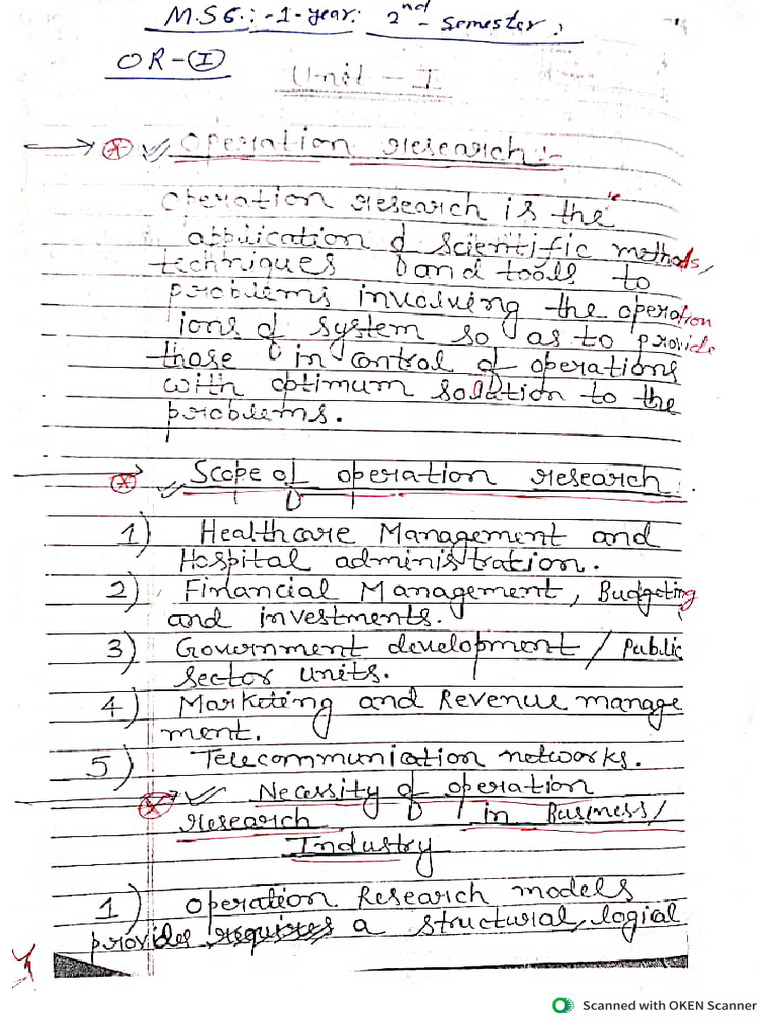 M.Sc.:-1-year: 2nd-semester,
OR-(I)
Unit - I
Operation research:-
Operation research is the
application of scientific methods,
techniques and tools to
problems involving the operation
ions of system so as to provide
those in control of operations
with optimum solution to the
problems.
Scope of operation research:
1) Healthcare Management and
Hospital administration.
2) Financial Management, Budgeting
and investments.
3) Government development / Public
sector units.
4) Marketing and Revenue manage
ment.
5) Telecommunication networks.
Necessity of operation
research in Business/
Industry
1) Operation Research models
provides requires a structural, logial
Scanned with OKEN Scanner